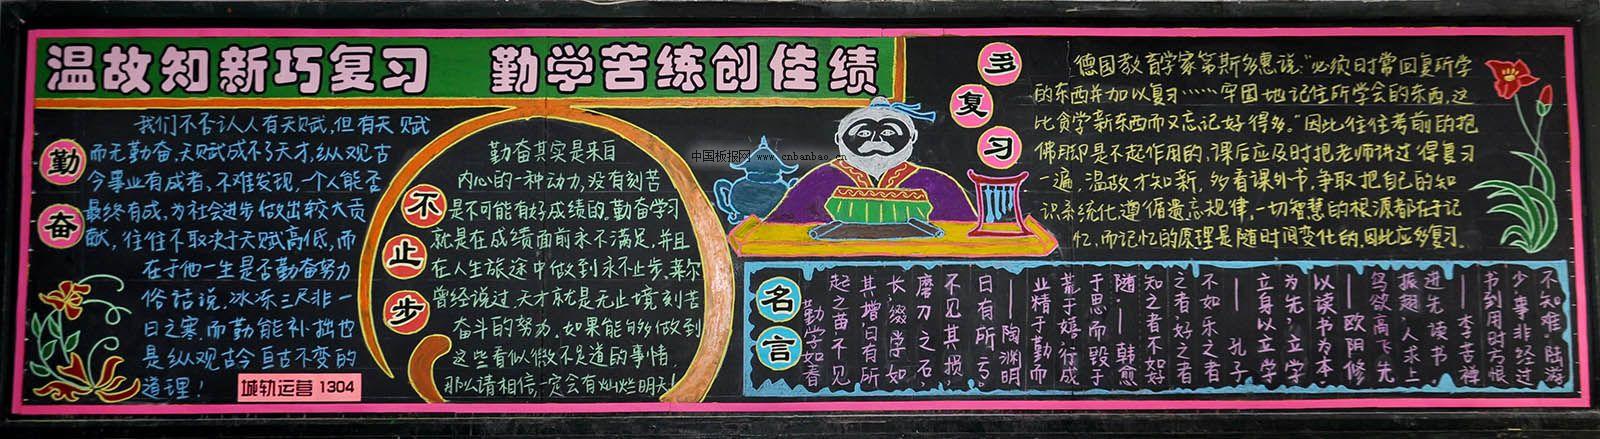 温故知新巧复习 勤学苦练创佳绩
勤奋
我们不否认人有天赋,但有天赋
而无勤奋,天赋成不了天才,纵观古
今事业有成者,不难发现,一个人能否
最终有成,为社会进步做出较大贡
献,往往不取决于天赋高低,而
在于他一生是否勤奋努力
俗话说,冰冻三尺非一
日之寒.而勤能补拙也
是纵观古今亘古不变的
道理!
城轨运营1304
不止步
勤奋其实是来自
内心的一种动力,没有刻苦
是不可能有好成绩的。勤奋学习
就是在成绩面前永不满足,并且
在人生旅途中做到永不止步,莱尔
曾经说过,天才就是无止境刻苦
奋斗的努力,如果能够做到
这些看似微不足道的事情,
那么请相信,定会有灿烂明天!
中国板报网 www.cnbanbao.cn
多复习
德国教育学家第斯多惠说:“必须日时常回复所学
的东西并加以复习……牢固地记住所学会的东西,这
比贪学新东西而又忘记好得多。”因此往往考前的抱
佛脚是不起作用的,课后应及时把老师讲过得复习
一遍,温故才知新,多看课外书,争取把自己的知
识系统化遵循遗忘规律,一切智慧的根源都在于记
忆,而记忆的原理是随时间变化的,因此应多复习。
名言
勤学如春
起之苗不见
其增,日有所
长,缀学如
磨刀之石,
不见其损,
日有所亏。
——陶渊明
业精于勤而
荒于嬉,行成
于思而毁于
随——韩愈
知之者不如好
之者好之者
不如乐之者
——孔子
立身以立学
为先,立学
以读书为本.
——欧阳修
鸟欲高飞先
振翅,人求上
进先读书.
——李苦禅
书到用时方恨
少,事非经过
不知难·陆游